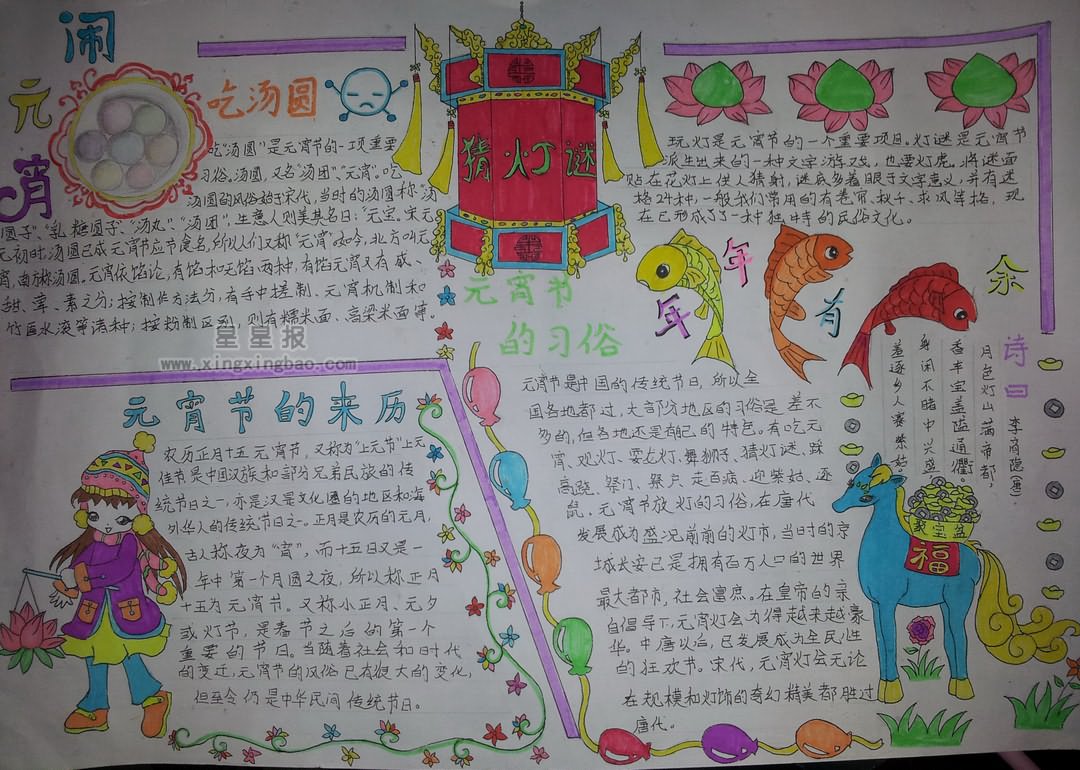 闹
元
宵
吃汤圆
吃"汤圆"是元宵节的一项重要
习俗。汤圆,又名"汤团"、"元宵"。吃
汤圆的风俗始于宋代,当时的汤圆称"汤
圆子"、"乳糖圆子"、"汤丸"、"汤团",生意人则美其名曰:"元宝。宋元
元初时,汤圆已成元宵节应节食名,所以人们又称"元宵"。如今,北方叫元
宵,南方称汤圆。元宵依馅论,有馅和无馅两种,有馅元宵又有咸、
甜、荤、素之分;按制作方法分,有手中搓制、元宵机制和
竹匾水滚等诸种;按粉制区别,则有糯米面、高粱米面等。
星星报
www.xingxingbao.com
猜灯谜
玩灯是元宵节的一个重要项目。灯谜是元宵节
派生出来的一种文字游戏,也要灯虎。将谜面
贴在花灯上供人猜射,谜底多着眼于文字意义,并有谜
格24种,一般我们常用的有卷帘、秋千、求凤等格,现
在已形成了了一种独特的民俗文化。
年
年
有
余
元宵节
的习俗
元宵节是中国的传统节日,所以全
国各地都过,大部分地区的习俗是差不
多的,但各地还是有自己的特色。有吃元
宵、观灯、耍龙灯、舞狮子、猜灯谜、踩
高跷、祭门、祭户、走百病、迎紫姑、逐
鼠。元宵节放灯的习俗,在唐代
发展成为盛况前前的灯市,当时的京
城长安已是拥有百万人口的世界
最大都市,社会富庶。在皇帝的亲
自倡导下,元宵灯会为得越来越豪
华。中唐以后,已发展成为全民性
的狂欢节。宋代,元宵灯会无论
在规模和灯饰的奇幻精美都胜过
唐代。
诗曰
李商隐(唐)
月色灯山满帝都,
香车宝盖隘通衢。
身闲不睹中兴盛
羞逐乡人赛紫姑。
聚宝盆
福
元宵节的来历
农历正月十五元宵节,又称为"上元节"上元
佳节是中国汉族和部分兄弟民族的传
统节日之一,亦是汉文化圈的地区和海
外华人的传统节日之一。正月是农历的元月,
古人称夜为"宵",而十五日又是一
年中第一个月圆之夜,所以称正月
十五为元宵节。又称小正月、元夕
或灯节,是春节之后的第一个
重要的节日。当随着社会和时代
的变迁,元宵节的风俗已有很大的变化,
但至今仍是中华民间传统节日。